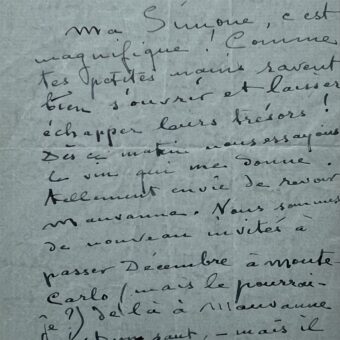 Ma Simone, c'est
magnifique ! Comme
tes petites mains savent
bien s'ouvrir et laisser
échapper leurs trésors !
Dès ce matin nous essayons
le vin qui me donne
tellement envie de revoir
Mauvanne. Nous sommes
de nouveau invités à
passer Décembre à Monte-
Carlo, (mais le pourrai-
je ?) de là à Mauvanne
saut, - mais il